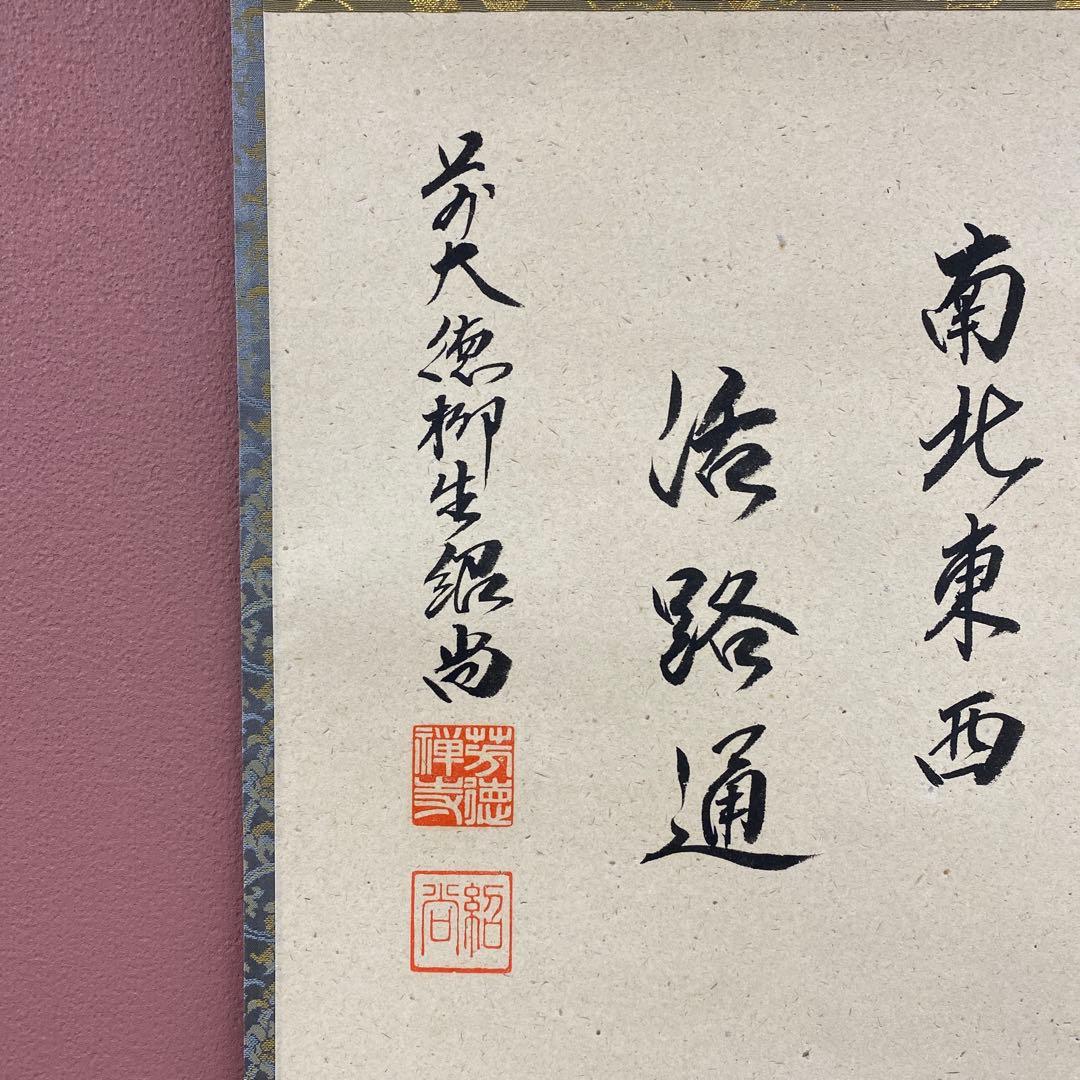 南北東西
活路通
前大徳柳生紹尚
芳徳禅寺
紹尚